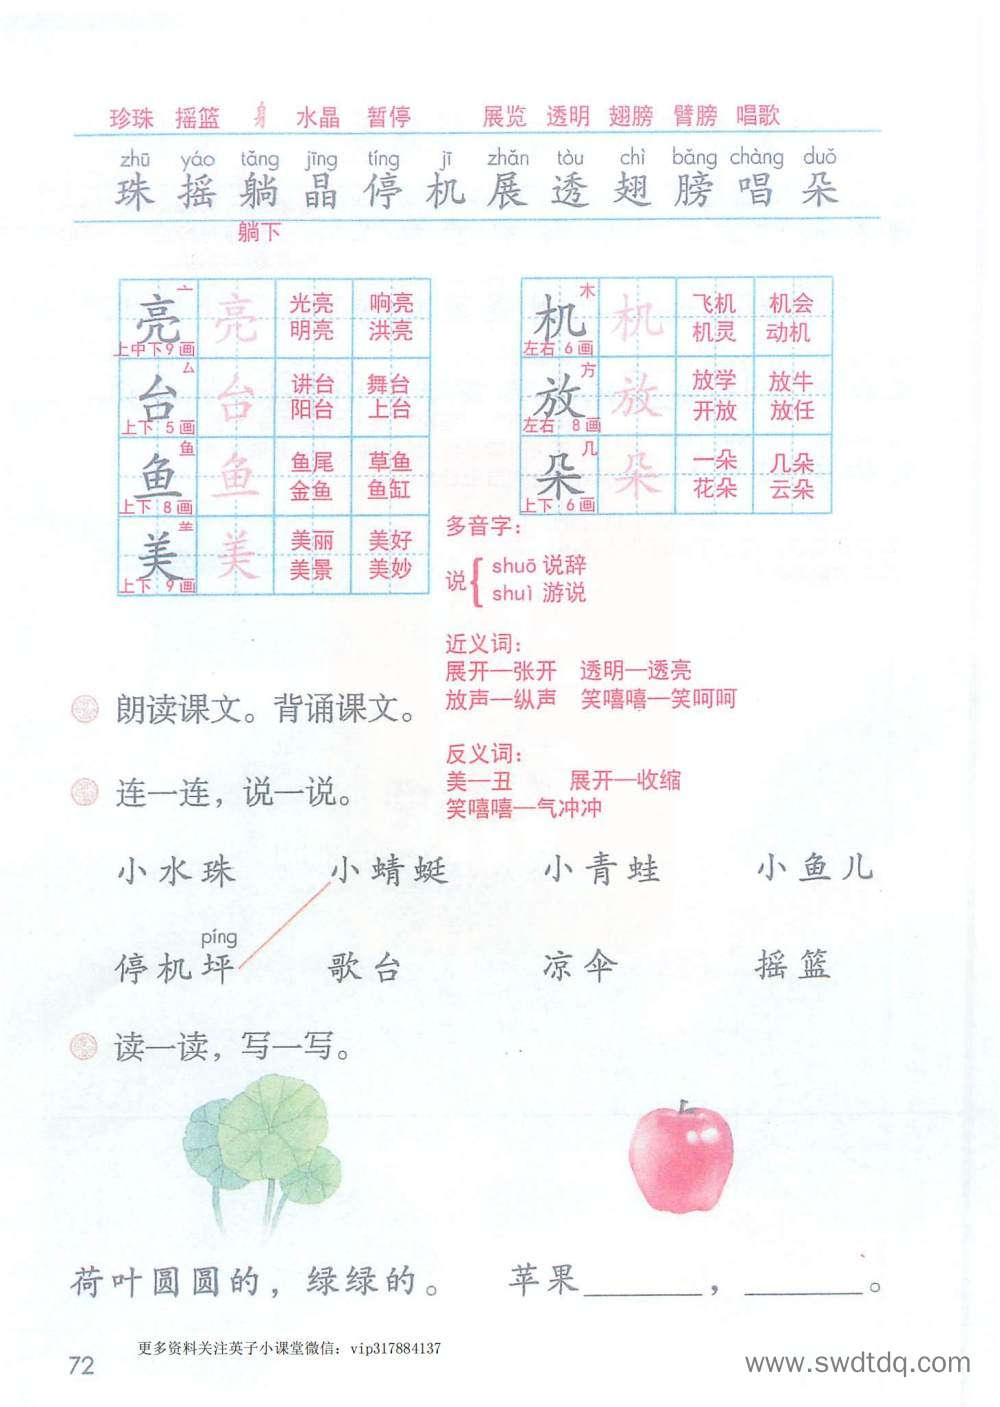 珍珠 摇篮 身 水晶 暂停 展览 透明 翅膀 臂膀 唱歌
zhū yáo tǎng jīng tíng jī zhǎn tòu chì bǎng chàng duǒ
珠 摇 躺 晶 停 机 展 透 翅 膀 唱 朵
躺下
亮 亠 上中下9画 亮 光亮 响亮
明亮 洪亮
台 厶 上下 5画 台 讲台 舞台
阳台 上台
鱼 鱼 上下 8画 鱼 鱼尾 草鱼
金鱼 鱼缸
美 上下 9画 美 美丽 美好
美景 美妙
机 木 左右 6画 机 飞机 机会
机灵 动机
放 方 左右 8画 放 放学 放牛
开放 放任
朵 几 上下 6画 朵 一朵 几朵
花朵 云朵
多音字：
说 shuō 说辞
shuì 游说
近义词：
展开—张开 透明—透亮
放声—纵声 笑嘻嘻—笑呵呵
朗读课文。背诵课文。
反义词：
美—丑 展开—收缩
笑嘻嘻—气冲冲
连一连，说一说。
小水珠 小蜻蜓 小青蛙 小鱼儿
píng
停机坪 歌台 凉伞 摇篮
读一读，写一写。
荷叶圆圆的，绿绿的。 苹果______，______。
更多资料关注英子小课堂微信：vip317884137
72
www.swdtdq.com